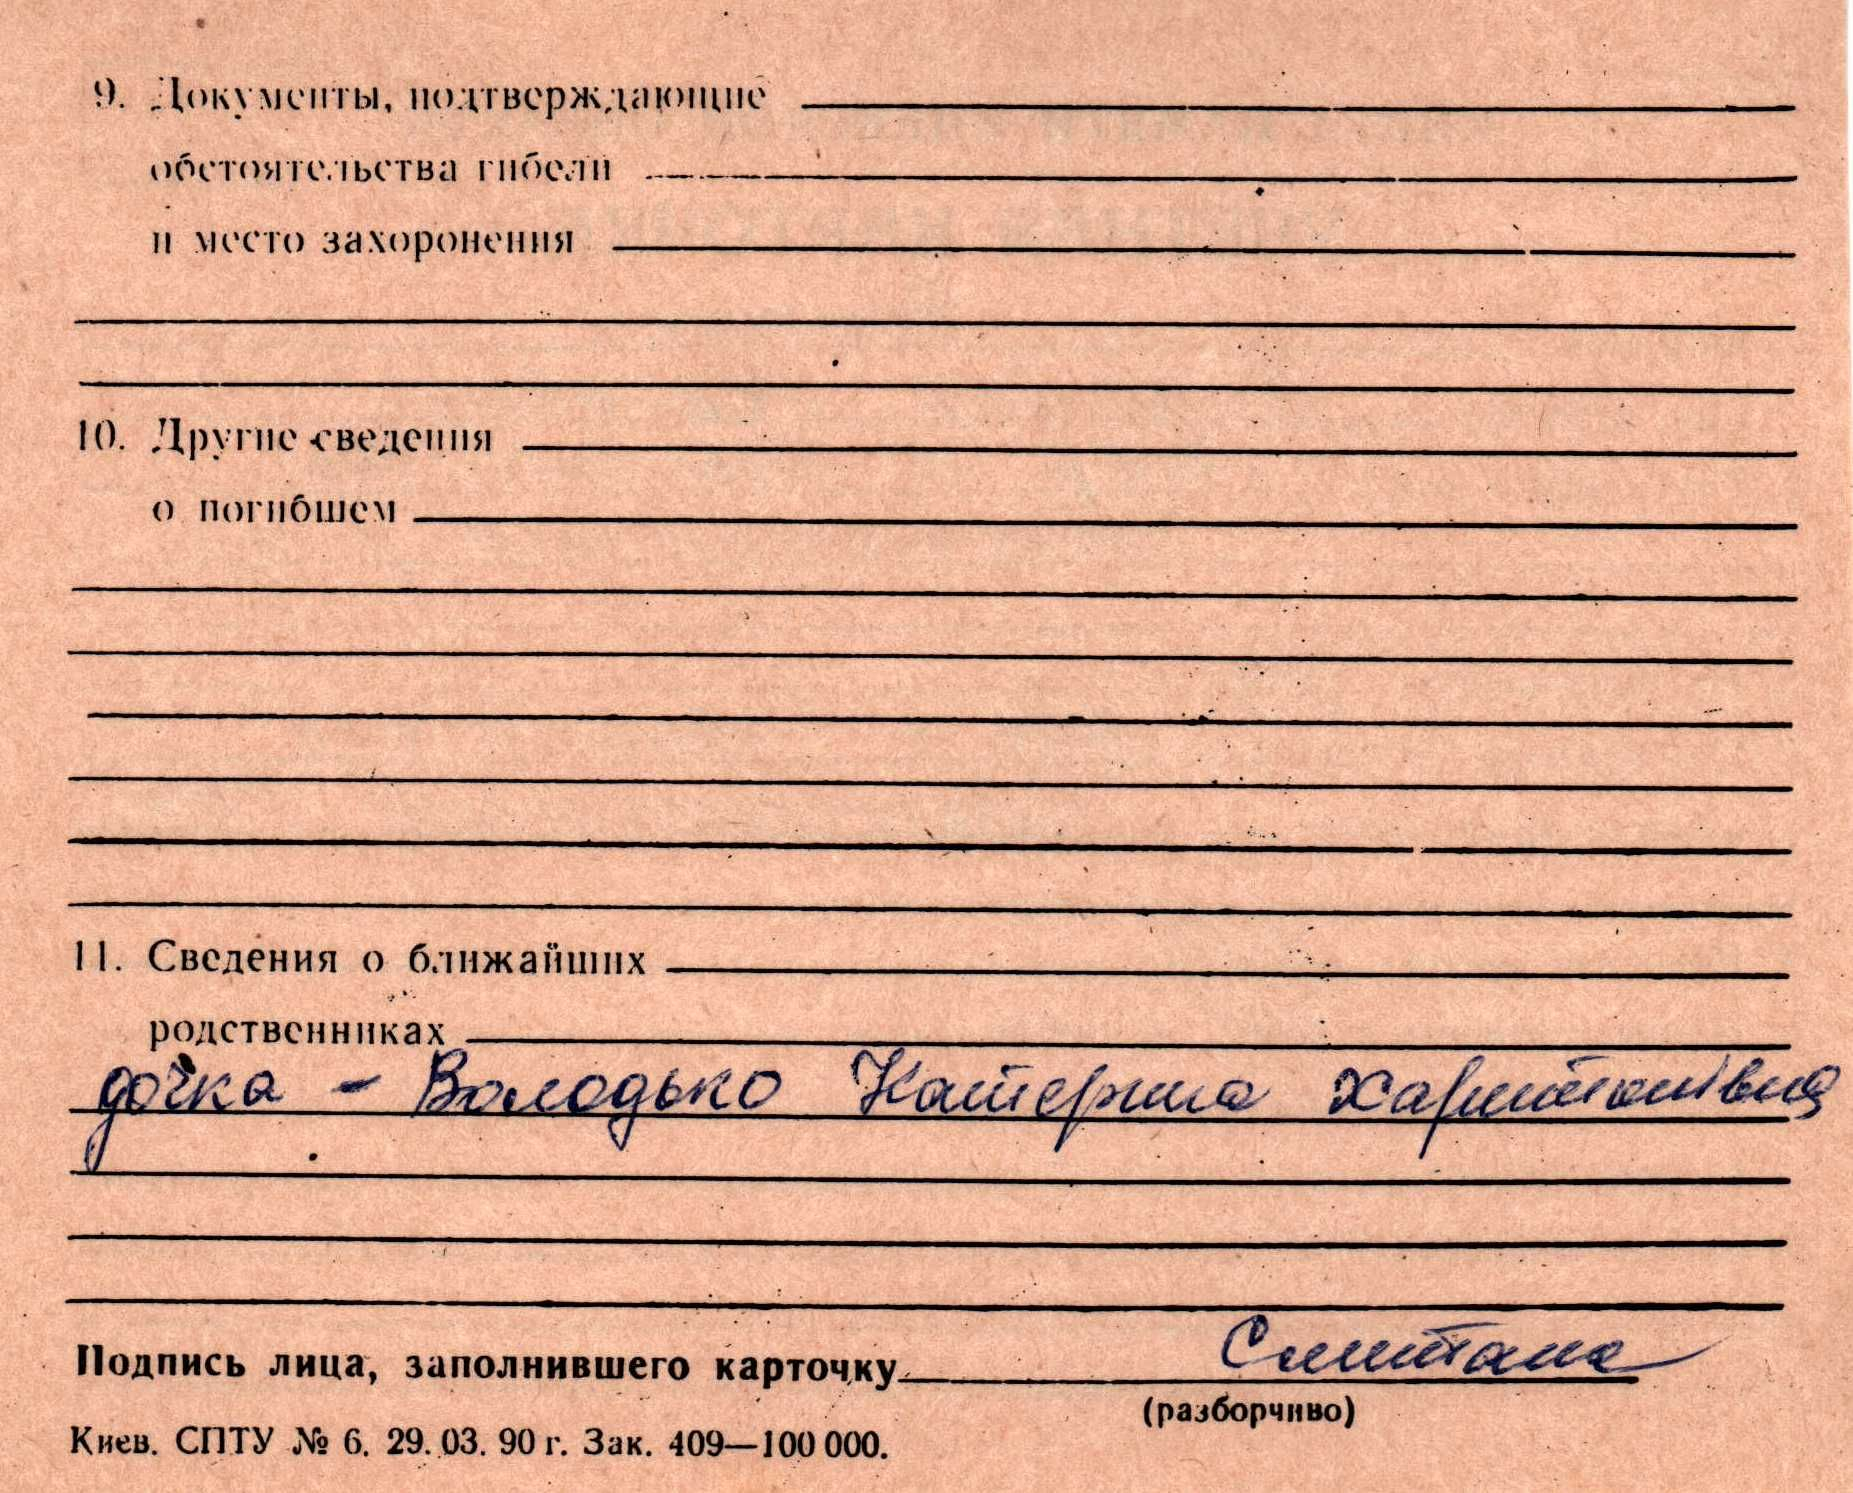 9. Документы, подтверждающие
обстоятельства гибели
и место захоронения
10. Другие сведения
о погибшем
11. Сведения о ближайших
родственниках
дочка - Володько Катерина Харитонівна
Подпись лица, заполнившего карточку
(разборчиво)
Киев. СПТУ № 6. 29. 03. 90 г. Зак. 409—100 000.